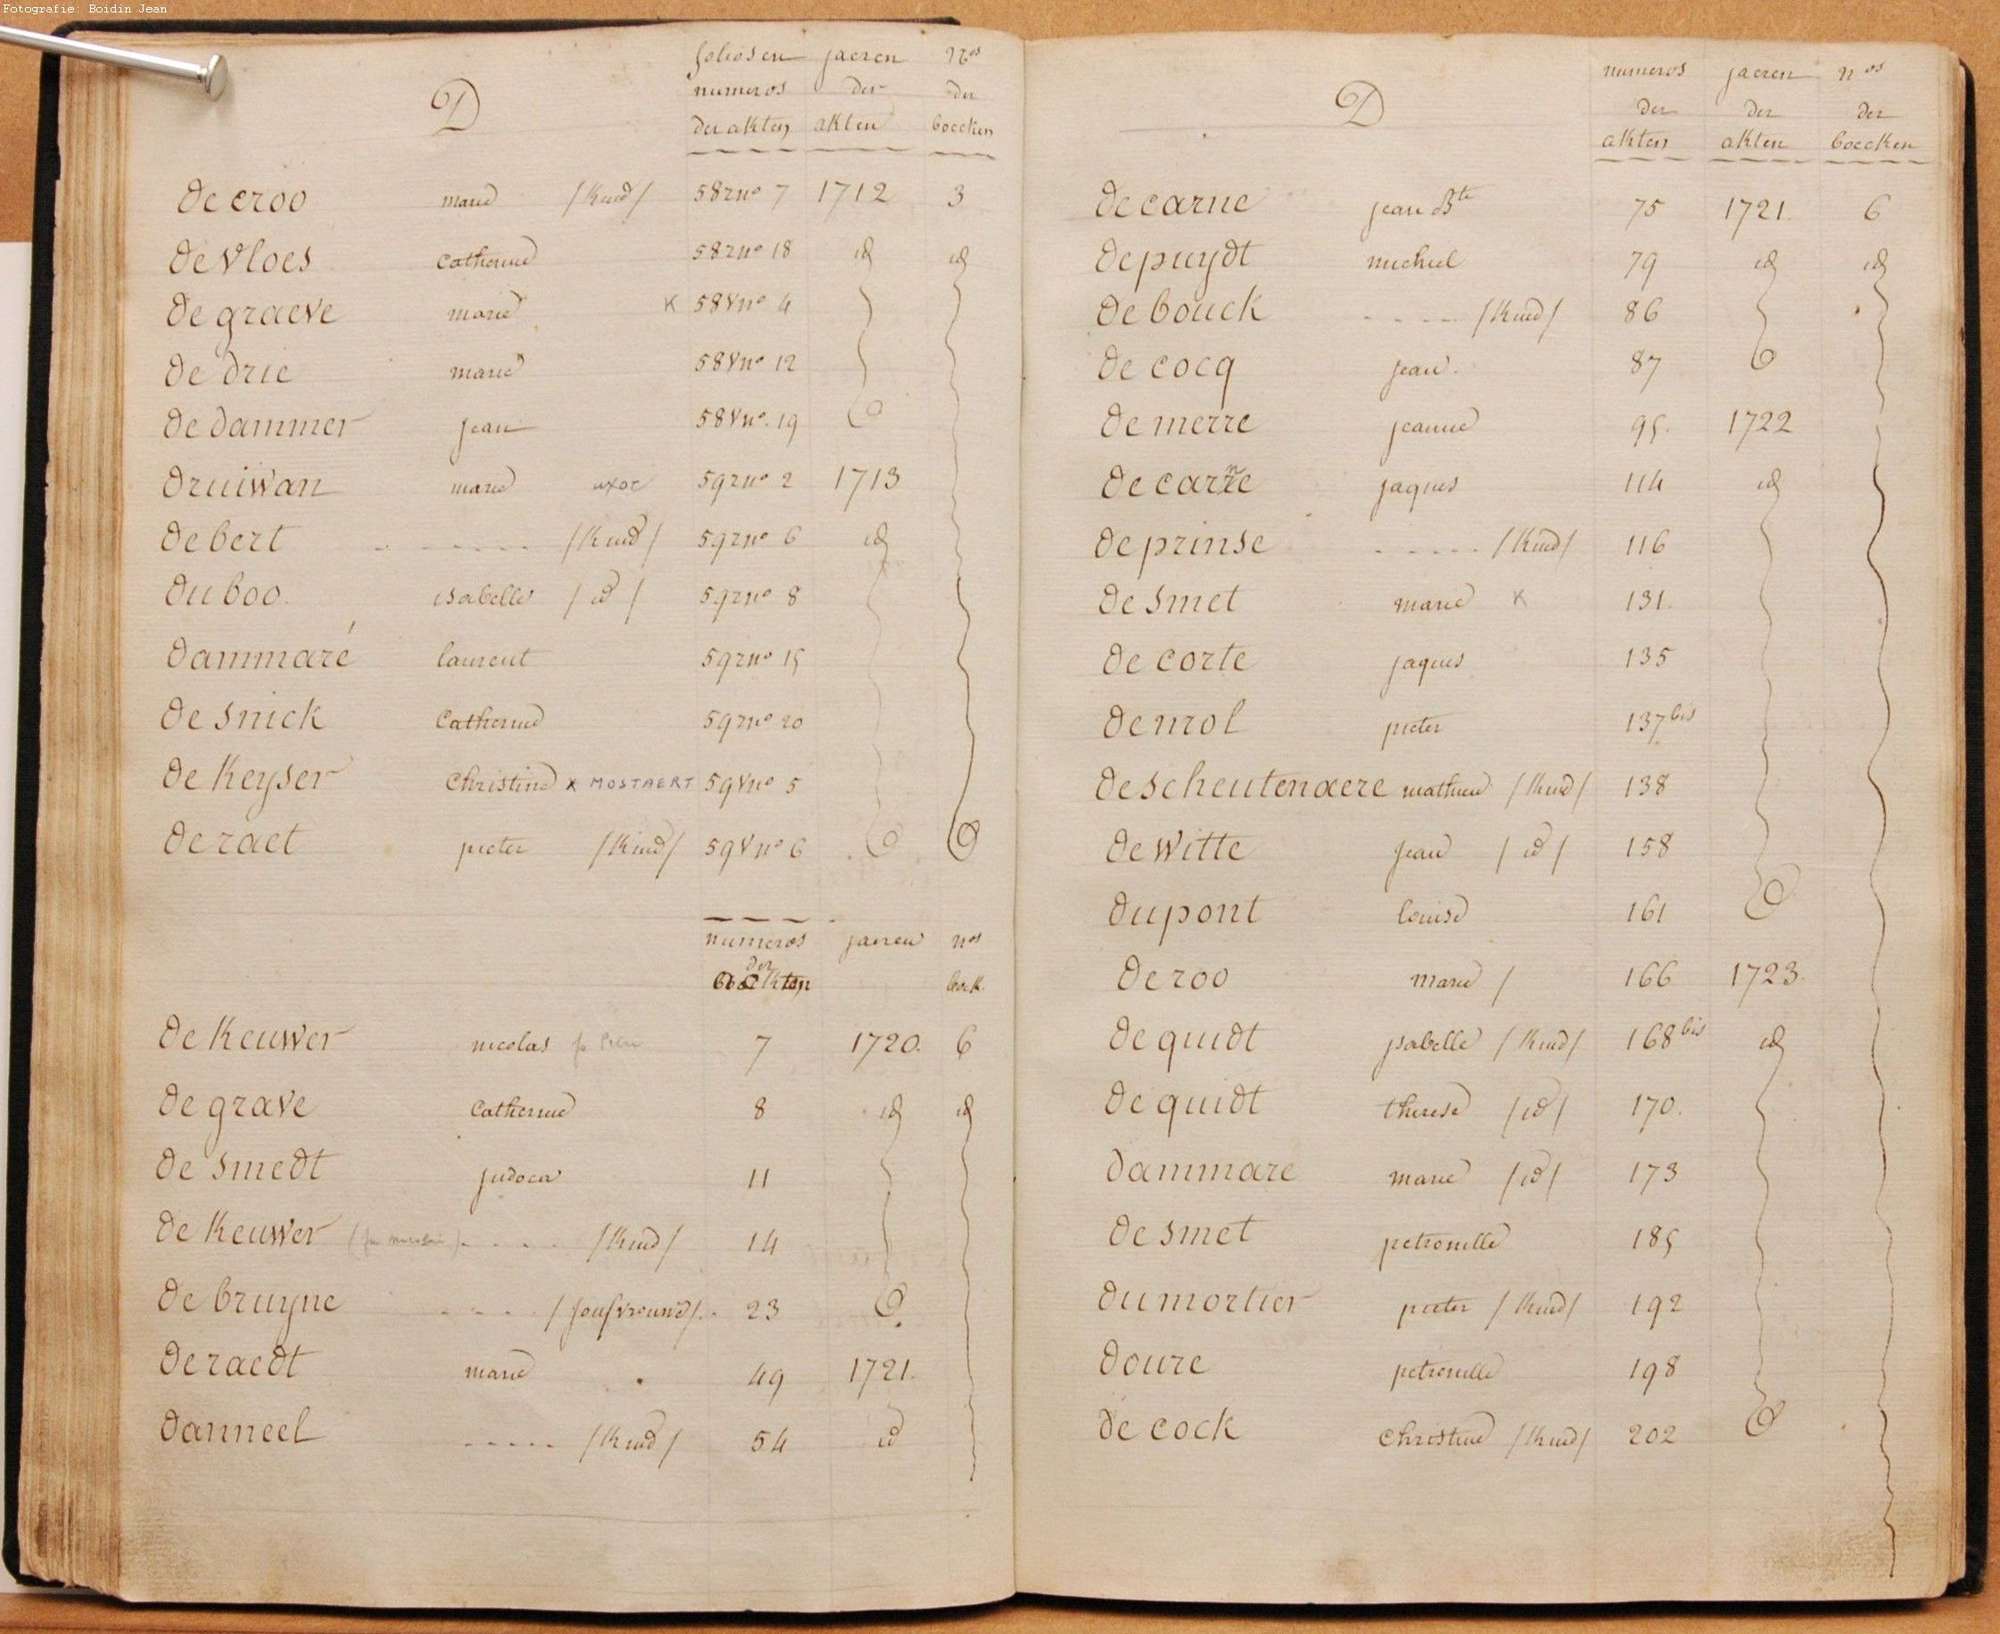 Fotografie: Boidin Jean
D
folios en jaeren Nos
numeros der der
der akten akten boecken
de croo marie /Kind/ 58 r no 7 1712 3
de vloes Catherine 58 r no 18 id id
de graeve marie K 58 v no 4
de drie marie 58 v no 12
de dammer jean 58 v no. 19
druiwan marie uxor 59 r no 2 1713
de bert - - - - - /Kind/ 59 r no 6 id
du boo. isabelle /id/ 59 r no 8
dammaré laurent 59 r no 15
de snick Catherine 59 r no 20
de Keyser Christine x MOSTAERT 59 v no 5
de raet pieter /Kind/ 59 v no 6
numeros jaeren nos
der akten boek.
de Keuwer nicolas 7 1720. 6
de grave Catherine 8 id id
de smedt judoca 11
de Keuwer - - - - /Kind/ 14
de bruyne - - - - /joufvrouwe/ 23
de raedt marie 49 1721.
danneel - - - - - /Kind/ 54 id
D
numeros jaeren nos
der der der
akten akten boecken
de carne jean Bte 75 1721. 6
de puydt michiel 79 id id
de bouck - - - - - /Kind/ 86
de cocq jean. 87
de merre jeanne 95. 1722
de carne jaques 114 id
de prinse - - - - - /Kind/ 116
de smet marie K 131.
de corte jaques 135
de nrol pieter 137 bis
de scheutenaere mathieu /Kind/ 138
de witte jean /id/ 158
dupont louise 161
de roo marie / 166 1723.
de quidt isabelle /Kind/ 168 bis id
de quidt therese /id/ 170.
dammare marie /id/ 173
de smet petronille 185
du mortier pieter /Kind/ 192
doure petronille 198
de cock Christine /Kind/ 202